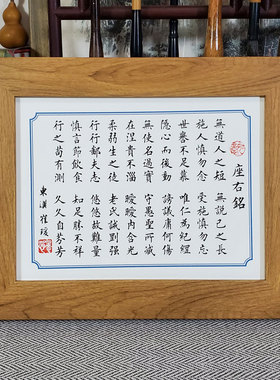 座右銘
無道人之短 無說己之長
施人慎勿念 受施慎勿忘
世譽不足慕 唯仁為紀綱
隱心而後動 謗議庸何傷
無使名過實 守愚聖所臧
在涅貴不淄 曖曖內含光
柔弱生之徒 老氏誡剛強
行行鄙夫志 悠悠故難量
慎言節飲食 知足勝不祥
行之苟有恆 久久自芬芳
東漢 崔瑗